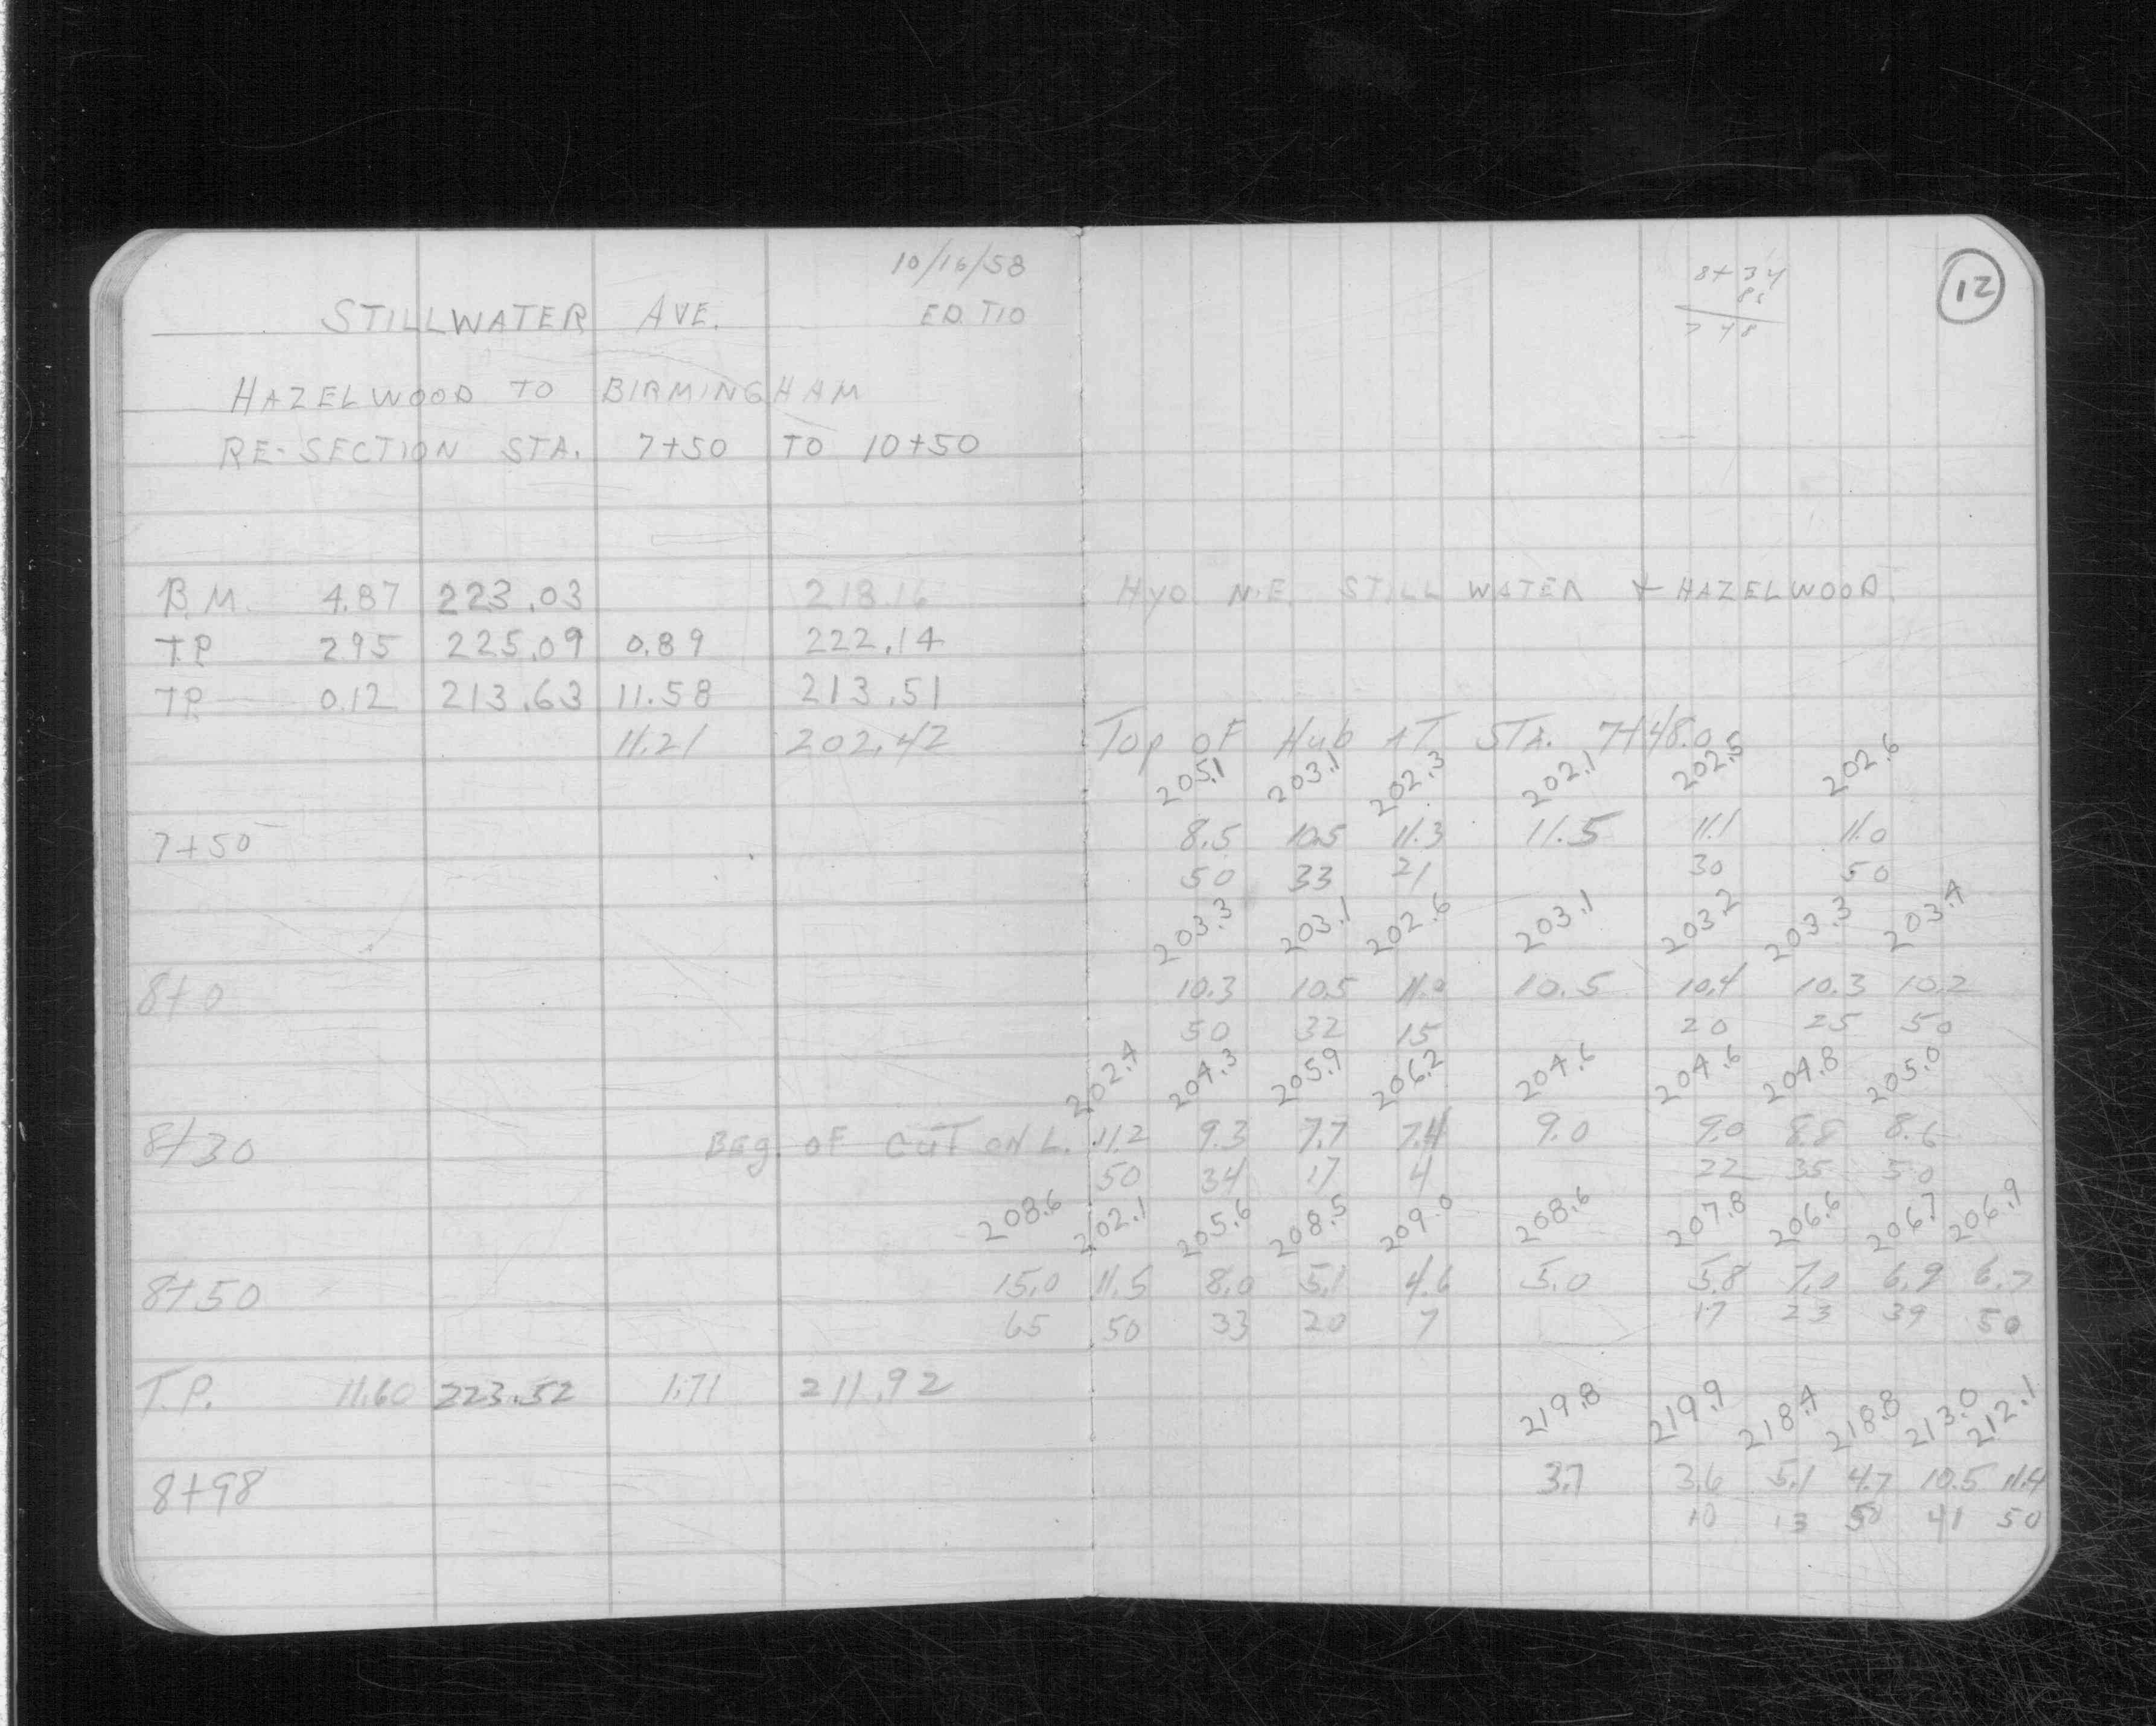 10/16/58
STILLWATER AVE. ED. TIO
HAZELWOOD TO BIRMINGHAM
RE-SECTION STA. 7+50 TO 10+50
B.M. 4.87 223.03 218.16
T.P. 2.95 225.09 0.89 222.14
T.P. 0.12 213.63 11.58 213.51
11.21 202.42
7+50
8+0
8+30 BEG. OF CUT ON L.
8+50
T.P. 11.60 223.52 1.71 211.92
8+98
12
8+34
86
748
HYD N.E. STILLWATER + HAZELWOOD
TOP OF HUB AT STA. 7+48.0
205.1 203.1 202.3 202.1 202.5 202.6
8.5 10.5 11.3 11.5 11.1 11.0
50 33 21 30 50
203.3 203.1 202.6 203.1 203.2 203.3 203.4
10.3 10.5 11.0 10.5 10.4 10.3 10.2
50 32 15 20 25 50
202.4 204.3 205.9 206.2 204.6 204.6 204.8 205.0
11.2 9.3 7.7 7.4 9.0 9.0 8.8 8.6
50 34 17 4 22 35 50
208.6 202.1 205.6 208.5 209.0 208.6 207.8 206.6 206.7 206.9
15.0 11.5 8.0 5.1 4.6 5.0 5.8 7.0 6.9 6.7
65 50 33 20 7 17 23 39 50
219.8 219.9 218.4 218.8 213.0 212.1
3.7 3.6 5.1 4.7 10.5 11.4
10 13 41 50